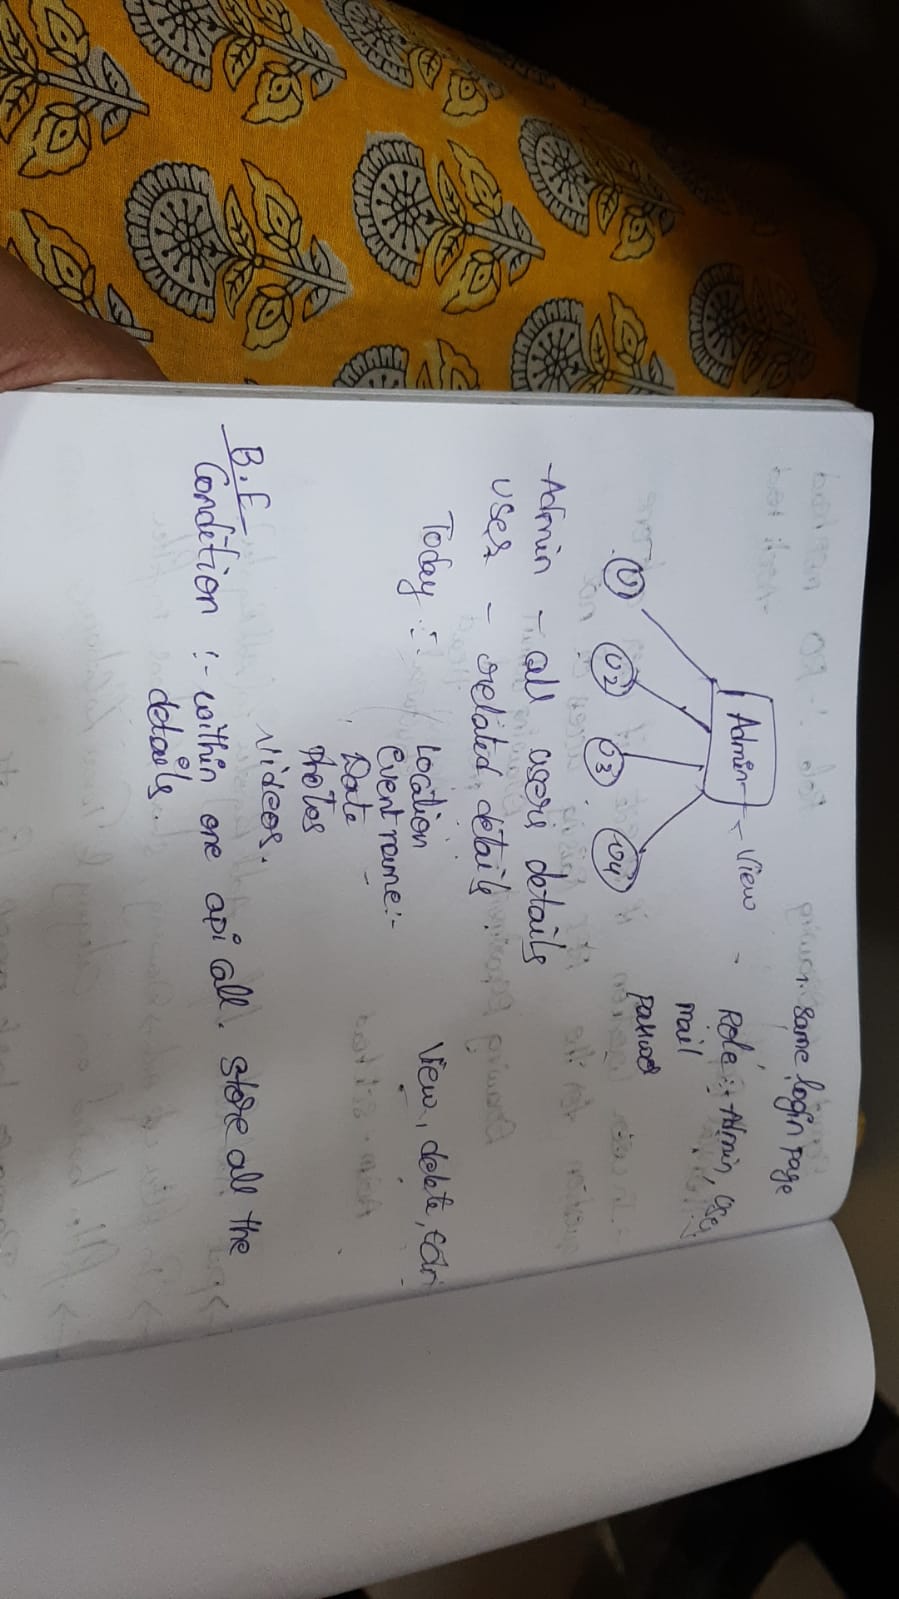 1. Same login page
Admin - View
Role :- Admin, User
mail
U1 U2 U3 U4
Admin - all users details
User - related details.
Today :- Location View, delete, Edit
Event name:-
Date
Photos
Videos.
B.E
Condition :- within one api call. store all the
details.